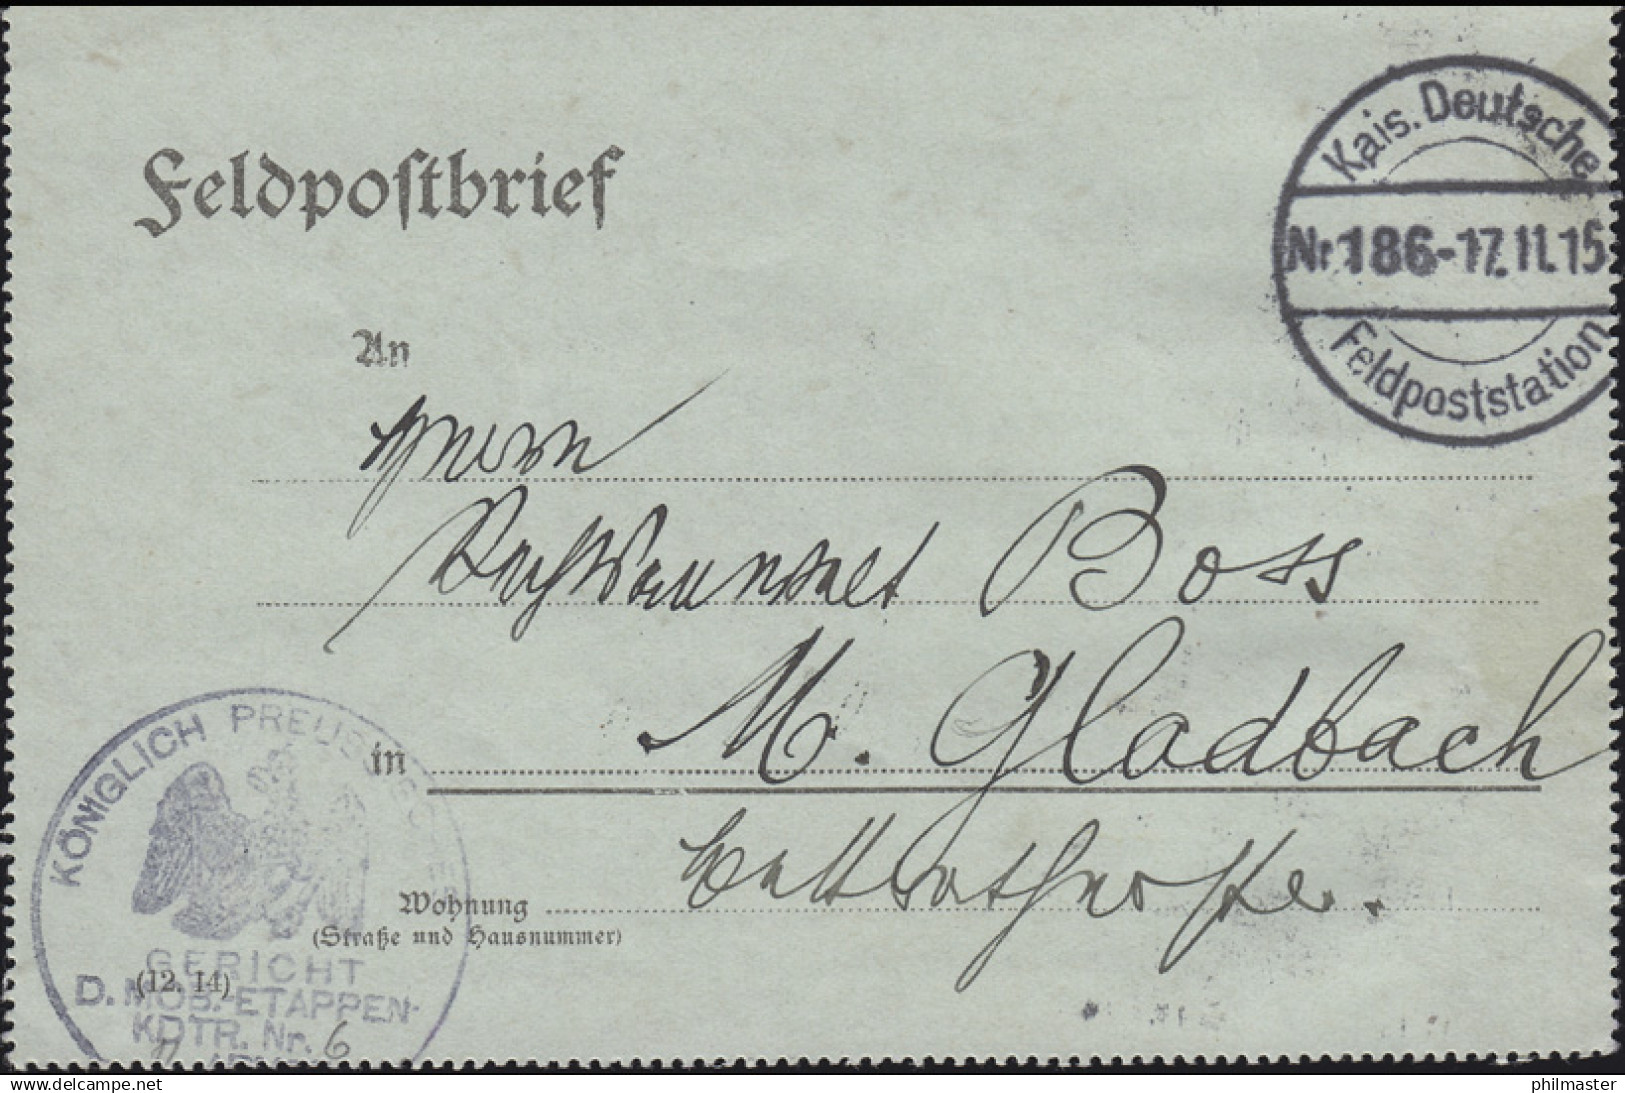 Feldpostbrief
Kais. Deutsche
Nr 186 - 17.11.15
Feldpoststation
An
Herrn
Rechtsanwalt Boss
in M. Gladbach
Wohnung Bettrathstraße.
(Straße und Hausnummer)
(12. 14)
KÖNIGLICH PREUSSISCHES
GERICHT
D. MOB.-ETAPPEN-
KDTR. Nr. 6
www.delcampe.net
philmaster